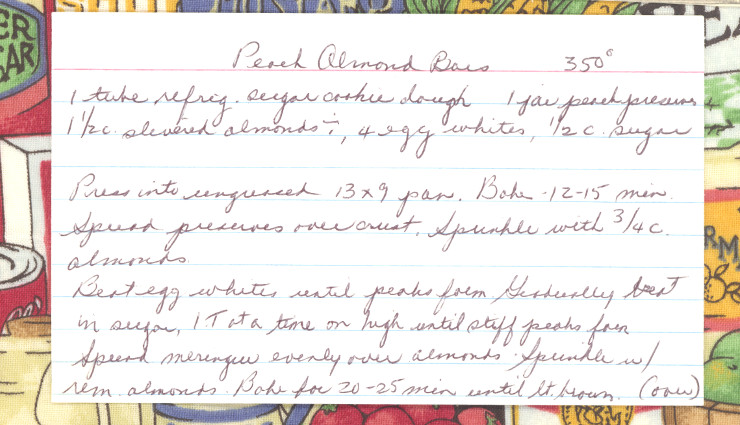 Peach Almond Bars 350°
1 tube refrig. sugar cookie dough 1 jar peach preserves
1 1/2 c. slivered almonds ÷, 4 egg whites, 1/2 c. sugar
Press into ungreased 13x9 pan. Bake -12-15 min.
Spread preserves over crust. Sprinkle with 3/4 c.
almonds
Beat egg whites until peaks form Gradually beat
in sugar, 1 T at a time on high until stiff peaks form
Spread meringue evenly over almonds. Sprinkle w/
rem. almonds. Bake for 20-25 min until lt. brown. (over)